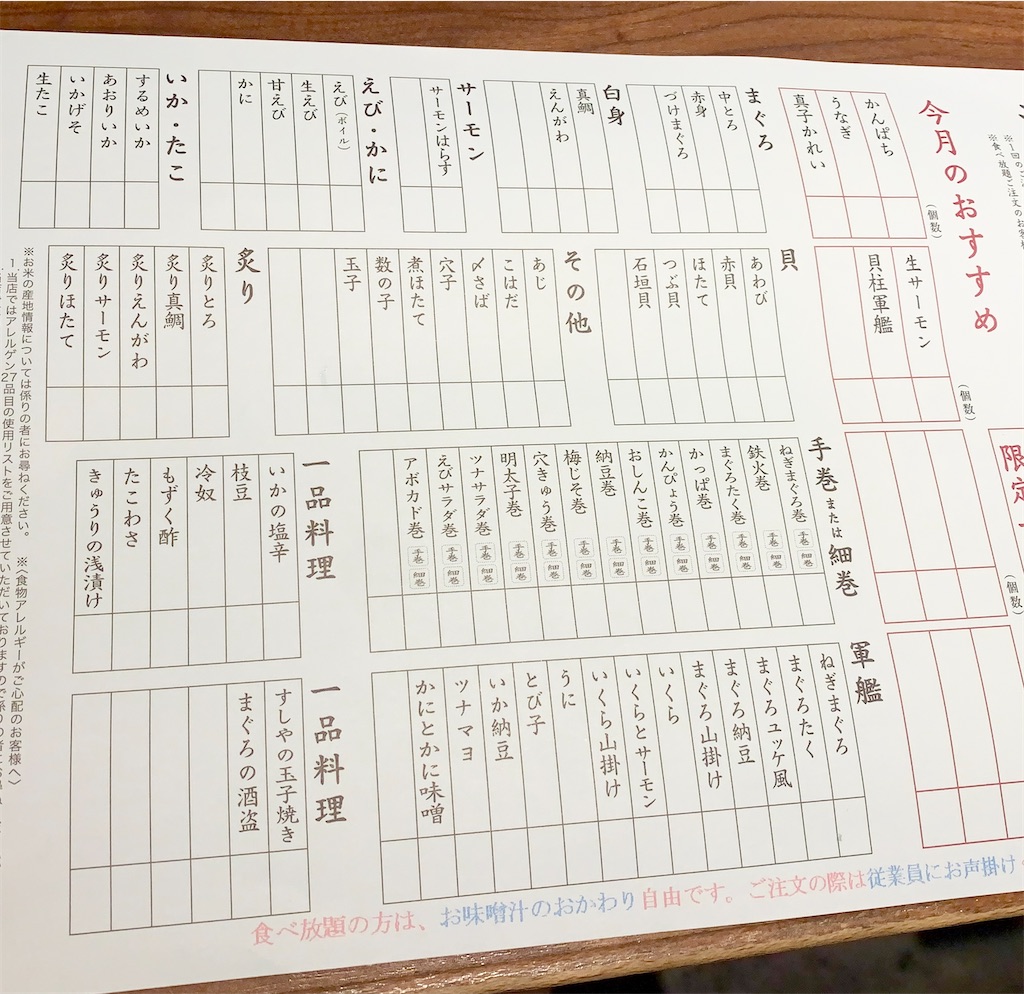 ※1回の
※食べ放題ご注文のお客様
今月のおすすめ
(個数)
かんぱち
うなぎ
真子かれい
(個数)
生サーモン
貝柱軍艦
限定
(個数)
まぐろ
中とろ
赤身
づけまぐろ
白身
真鯛
えんがわ
サーモン
サーモンはらす
えび・かに
えび(ボイル)
生えび
甘えび
かに
いか・たこ
するめいか
あおりいか
いかげそ
生たこ
貝
あわび
赤貝
ほたて
つぶ貝
石垣貝
その他
あじ
こはだ
〆さば
穴子
煮ほたて
数の子
玉子
炙り
炙りとろ
炙り真鯛
炙りえんがわ
炙りサーモン
炙りほたて
手巻または細巻
ねぎまぐろ巻 手巻 細巻
鉄火巻 手巻 細巻
まぐろたく巻 手巻 細巻
かっぱ巻 手巻 細巻
かんぴょう巻 手巻 細巻
おしんこ巻 手巻 細巻
納豆巻 手巻 細巻
梅じそ巻 手巻 細巻
穴きゅう巻 手巻 細巻
明太子巻 手巻 細巻
ツナサラダ巻 手巻 細巻
えびサラダ巻 手巻 細巻
アボカド巻 手巻 細巻
一品料理
いかの塩辛
枝豆
冷奴
もずく酢
たこわさ
きゅうりの浅漬け
軍艦
ねぎまぐろ
まぐろたく
まぐろユッケ風
まぐろ納豆
まぐろ山掛け
いくら
いくらとサーモン
いくら山掛け
うに
とび子
いか納豆
ツナマヨ
かにとかに味噌
一品料理
すしやの玉子焼き
まぐろの酒盗
※お米の産地情報については係りの者にお尋ねください。 ※〈食物アレルギーがご心配のお客様へ〉
1.当店ではアレルゲン27品目の使用リストをご用意させていただいておりますので係りの者にお尋ね
食べ放題の方は、お味噌汁のおかわり自由です。ご注文の際は従業員にお声掛け